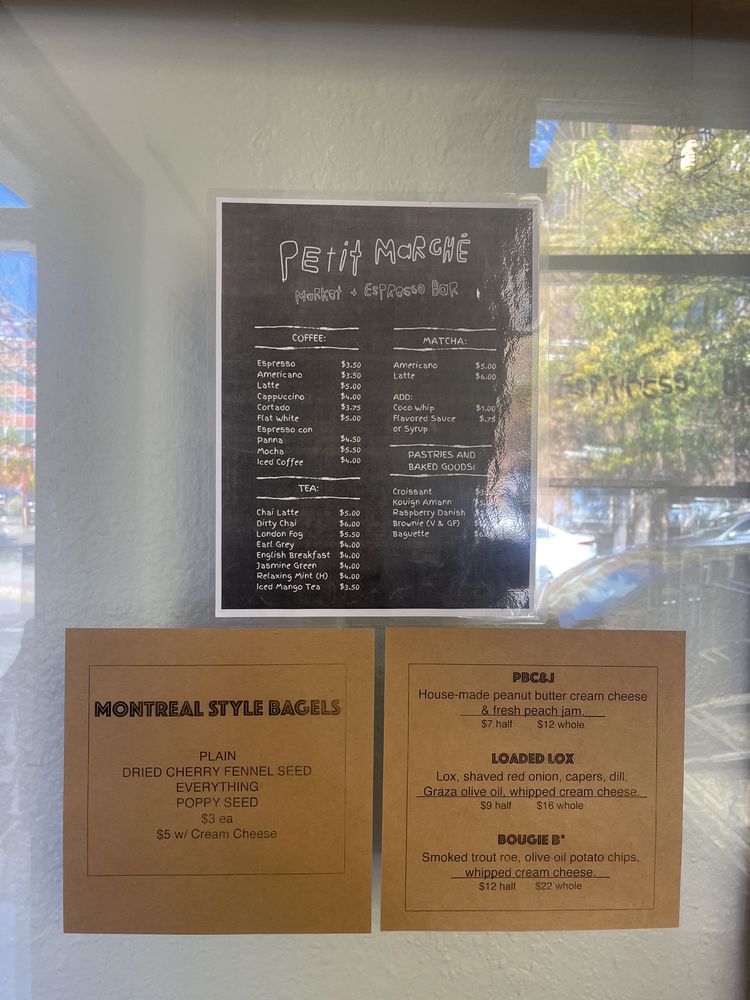 PEtit MARCHÉ
MARKET + ESPRESSO BAR
COFFEE:
Espresso $3.50
Americano $3.50
Latte $5.00
Cappuccino $4.00
Cortado $3.75
Flat white $5.00
Espresso con
Panna $4.50
Mocha $5.50
Iced Coffee $4.00
TEA:
Chai Latte $5.00
Dirty Chai $6.00
London Fog $5.50
Earl Grey $4.00
English Breakfast $4.00
Jasmine Green $4.00
Relaxing Mint (H) $4.00
Iced Mango Tea $3.50
MATCHA:
Americano $5.00
Latte $6.00
ADD:
Coco whip $1.00
Flavored Sauce $.75
or Syrup
PASTRIES AND
BAKED GOODS:
Croissant
Kouign Amann
Raspberry Danish
Brownie (V & GF)
Baguette
ESPRESSO
MONTREAL STYLE BAGELS
PLAIN
DRIED CHERRY FENNEL SEED
EVERYTHING
POPPY SEED
$3 ea
$5 w/ Cream Cheese
PBC&J
House-made peanut butter cream cheese
& fresh peach jam.
$7 half $12 whole
LOADED LOX
Lox, shaved red onion, capers, dill,
Graza olive oil, whipped cream cheese.
$9 half $16 whole
BOUGIE B*
Smoked trout roe, olive oil potato chips,
whipped cream cheese.
$12 half $22 whole